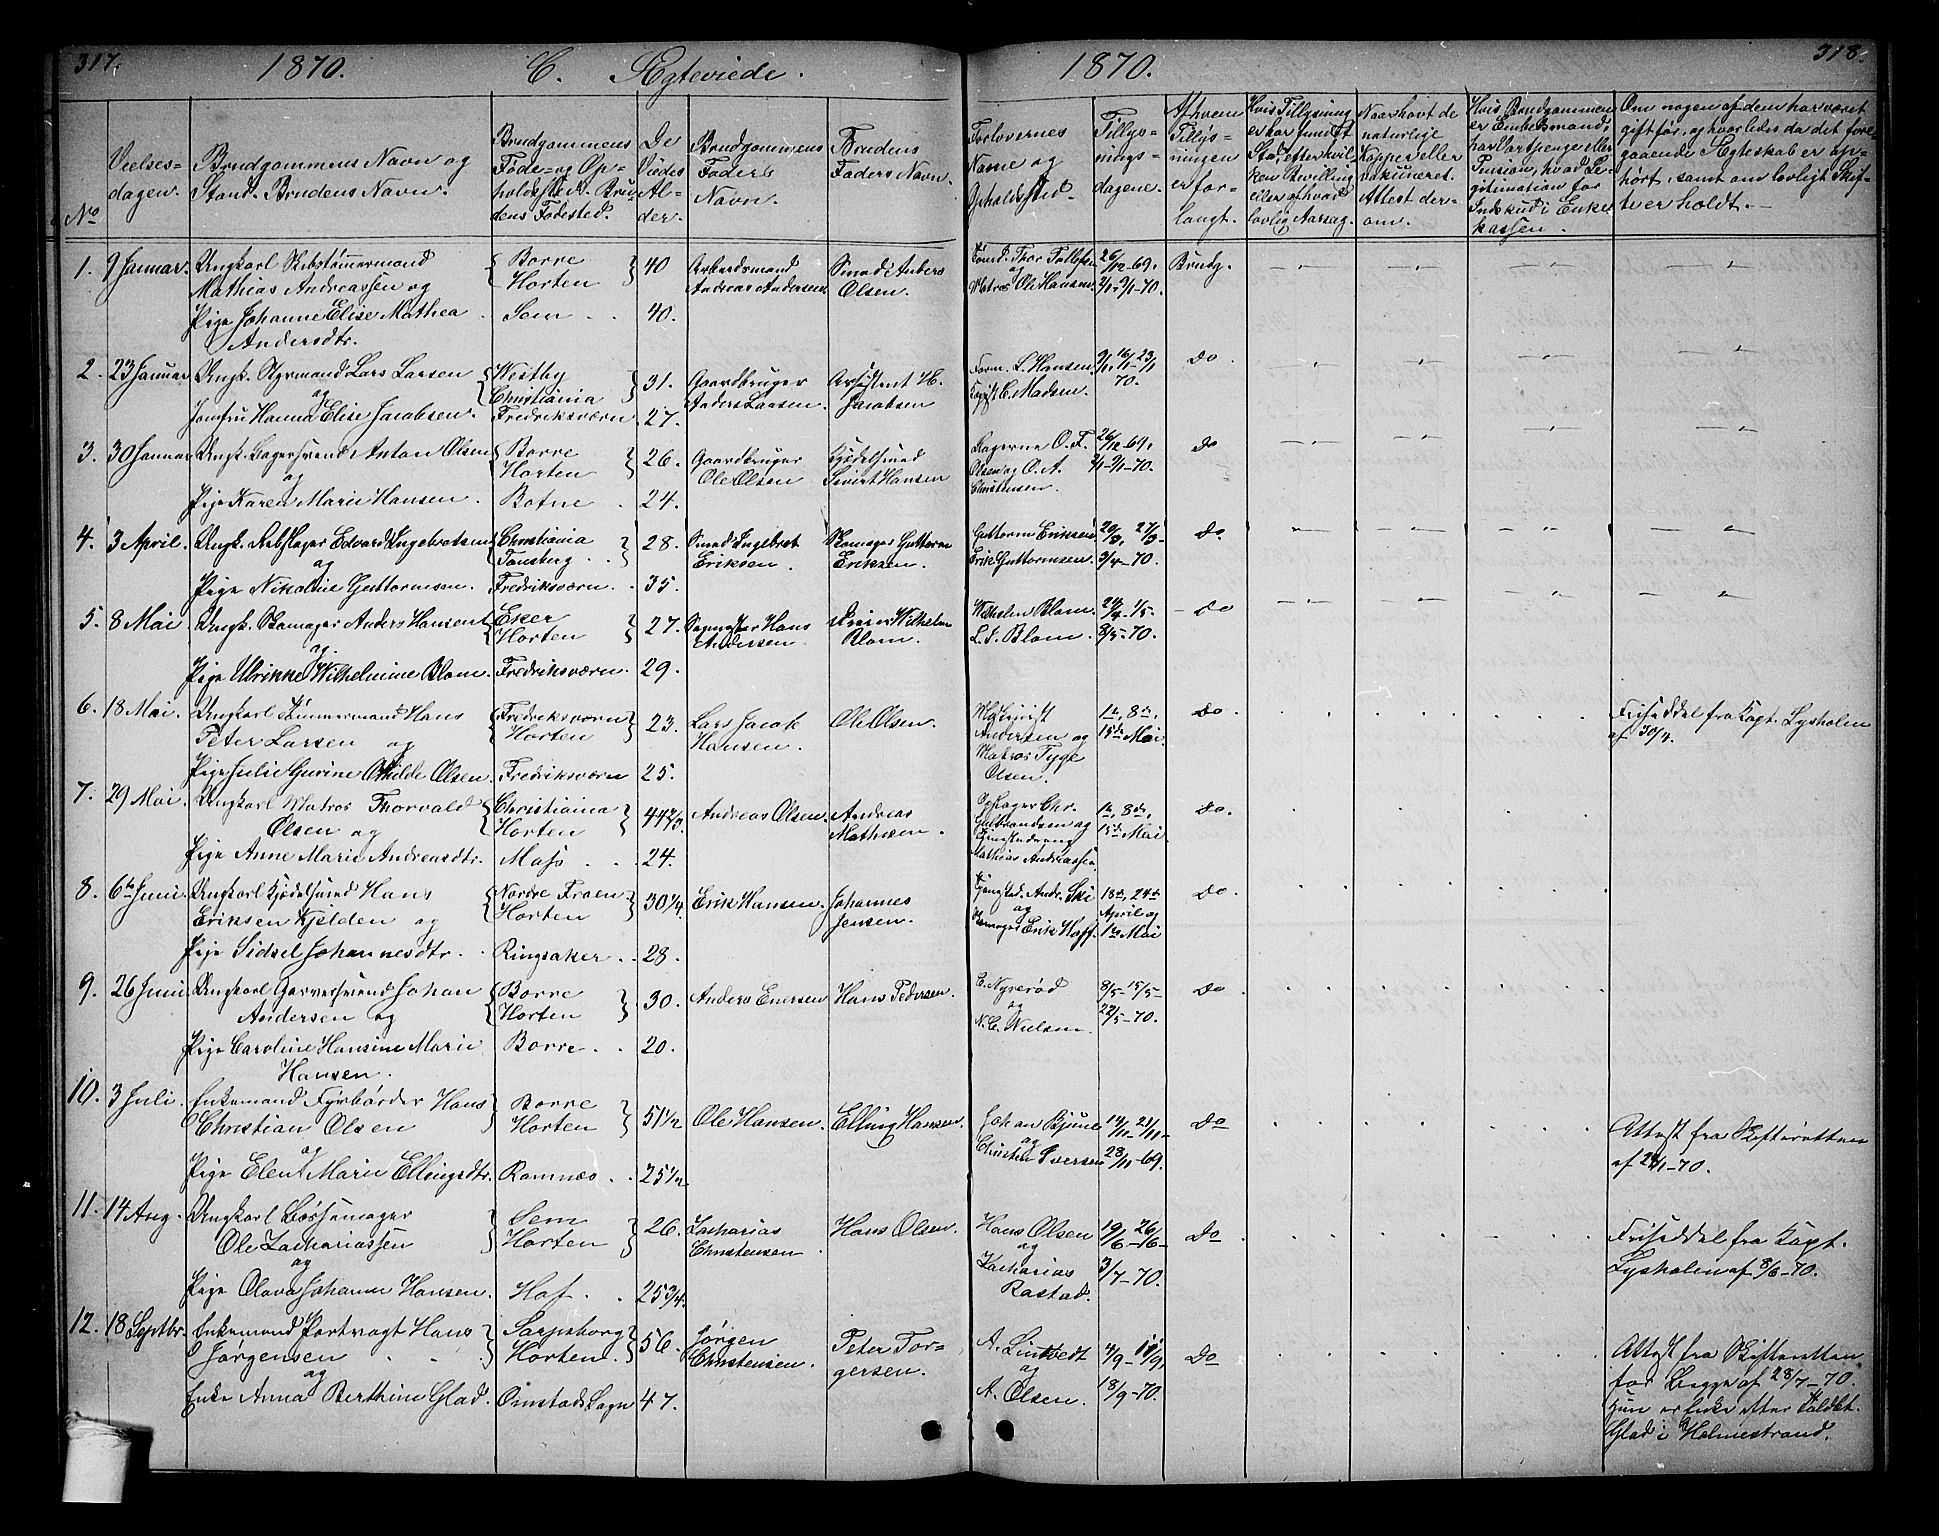 317.
1870.
C. Ægteviede.
1870.
318.
No
Vielses-
dagen.
Brudgommens Navn og
Stand. Brudens Navn.
Brudgommens
Føde- og Op-
holdssted. Bru-
dens Fødested.
De
Viedes
Al-
der.
Brudgommens
Faders
Navn.
Brudens
Faders Navn.
Forlovernes
Navne og
Opholdssted.
Tillys-
nings-
dagene.
Af hvem
Tillys-
ningen
er for-
langt.
Hvis Tillysning
er har fundet
Sted, efter hvil-
ken Bevilling
eller af hvad
lovlig Aarsag.
Naar havt de
naturlige
Kopper eller
vakcineret.
Attest der-
om.
Hvis Brudgommen
er Embedsmand,
har Vartpenge eller
Pension, hvad Le-
gitimation for
Indskud i Enke-
kassen.
Om nogen af dem har været
gift før, og hvorledes da det fore-
gaaende Ægteskab er op-
hørt, samt om lovligt Skif-
te er holdt.
1. 9 Januar. Ungkarl Skibstømmermand
Mathias Andreassen og
Pige Johanne Elise Mathea
Andersdtr.
Borre
Horten
Sem
40
40.
Arbeidsmand
Andreas Andersen.
Smed Anders
Olsen.
Tømd. Thor Tollefsen
og
Matros Ole Hansen.
26/12-69.
2/1-9/1-70.
Brudg.
2. 23 Januar Ungk. Styrmand Lars Larsen
og
Jomfru Hanna Elise Jacobsen.
Westby
Christiania
Fredriksværn
31.
27.
Gaardbruger
Anders Larsen.
Assistent H.
Jacobsen
Form. L. Hansen.
C. Madsen.
9/1, 16/1, 23/1
70.
Do
3. 30 Januar Ungk. Bagersvend Anton Olsen
og
Pige Karen Marie Hansen.
Borre
Horten
Botne
26.
24.
Gaardbruger
Ole Olsen
Kjedelsmed
Sivert Hansen
Bagerne O. F.
Olsen og O. A.
Christensen.
26/12-69.
2/1-9/1-70.
Do
4. 3 April. Ungk. Rebslager Edvard Ingebretsen
og
Pige Nikoline Guttormsen.
Christiania
Tønsberg
Fredriksværn.
28.
35.
Smed Ingebret
Eriksen.
Skomager Guttorm
Eriksen.
Guttorm Eriksen
Erik Guttormsen.
20/3, 27/3-
3/4-70.
Do
5. 8 Mai Ungk. Skomager Anders Hansen
og
Pige Ulrikke Wilhelmine Blom.
Eker
Horten
Fredriksværn.
27.
29.
Hans
Andersen.
Wilhelm
Blom.
Wilhelm Blom.
L. J. Blom.
24/4-1/5-
8/5-70.
Do
6. 18 Mai. Ungkarl Tømmermand Hans
Peter Larsen og
Pige Julie Gurine Othilde Olsen.
Fredriksværn
Horten
Fredriksværn
23.
25.
Lars Jacob
Hansen.
Ole Olsen.
Maskinist
Andersen og
Matros Tyge
Olsen.
1te, 8de,
15de Mai.
Do
Friseddel fra Kapt. Lysholen
af 30/4.
7. 29 Mai. Ungkarl Matros Thorvald
Olsen og
Pige Anne Marie Andreasdtr.
Christiania
Horten
Moss
44 2/3.
24.
Andreas Olsen.
Andreas
Mathisen.
Opsager Chr.
Gulbrandsen og
Mathias Andreassen
1te, 8de,
15de Mai
Do.
8. 6te Juni. Ungkarl Kjedelsmed Hans
Eriksen Kjelden og
Pige Sidsel Johannesdtr.
Nordre Froen
Horten
Ringsaker
30 1/4.
28.
Erik Hansen.
Johannes
Jensen.
Andr. Ski
og
Erik Hoff.
18de, 24de
April og
1te Mai
Do.
9. 26 Juni Ungkarl Garversvend Johan
Andersen og
Pige Caroline Hansine Marie
Hansen.
Borre
Horten
Borre
30.
20.
Anders Enersen
Hans Pedersen.
C. Nyerød
og
N. C. Nielsen.
8/5-15/5-
22/5-70.
Do
10. 3 Juli. Enkemand Fyrbøder Hans
Christian Olsen
og
Pige Elen Marie Ellingsdtr.
Borre
Horten
Ramnes
51 1/2
25 1/2
Ole Hansen.
Elling Hansen.
Johan Bjune
og
Christen Iversen
14/11-21/11-
28/11-69.
Do
Attest fra Skifteretten
af 28/1-70.
11. 14 Aug. Ungkarl Bøssemager
Ole Zachariassen
og
Pige Olava Johanne Hansen.
Sem
Horten
Hof.
26.
25 3/4.
Zacharias
Christensen
Hans Olsen.
Hans Olsen
og
Zacharias
Rastad.
19/6-26/6-
3/7-70.
Do
Friseddel fra Kapt.
Lysholen af 8/6-70.
12. 18 Septbr. Enkemand Portvagt Hans
Jørgensen
og
Enke Anna Berthine Glad.
Sarpsborg
Horten.
Ørnstad Sogn
56.
47.
Jørgen
Christensen.
Peter Tor-
gersen.
A. Lindtvedt
og
A. Olsen.
4/9-11/9,
18/9-70.
Do
Attest fra Skifteretten
for Begge af 28/7-70.
Hun er Enke efter
Glad i Holmestrand.